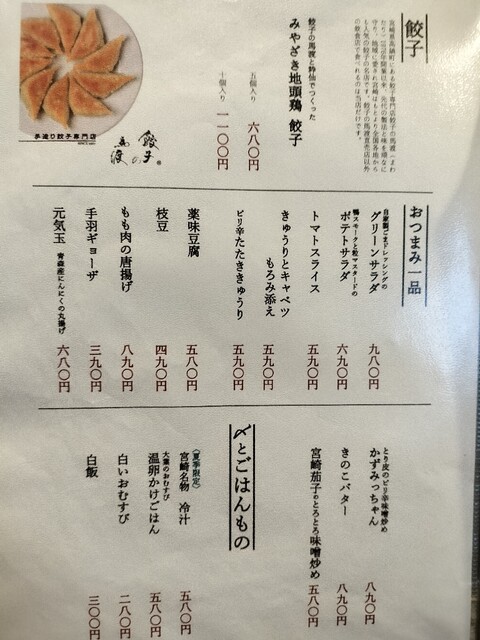 餃子
宮崎県高鍋町にある餃子専門店餃子の馬渡(まわ
たり)
の飲食店で食べれるのは当店だけです。
餃子の馬渡と粋仙でつくった
みやざき地頭鶏 餃子
五個入り 六八〇円
十個入り 一一〇〇円
手造り餃子専門店
餃子の馬渡
おつまみ一品
自家製ごまドレッシングの
グリーンサラダ 九八〇円
鴨スモークと粒マスタードの
ポテトサラダ 六九〇円
トマトスライス 五九〇円
きゅうりとキャベツ
もろみ添え 五九〇円
ピリ辛たたききゅうり 五九〇円
薬味豆腐 五八〇円
枝豆 四九〇円
もも肉の唐揚げ 八九〇円
手羽ギョーザ 三九〇円
元気玉 青森産にんにくの丸揚げ 六八〇円
とり皮のピリ辛味噌炒め
かずみっちゃん 八九〇円
きのこバター 八九〇円
宮崎茄子のとろとろ味噌炒め 五八〇円
〆とごはんもの
(夏季限定)
宮崎名物 冷汁 五八〇円
大葉のおむすび
温卵かけごはん 五八〇円
白いおむすび 二八〇円
白飯 三〇〇円